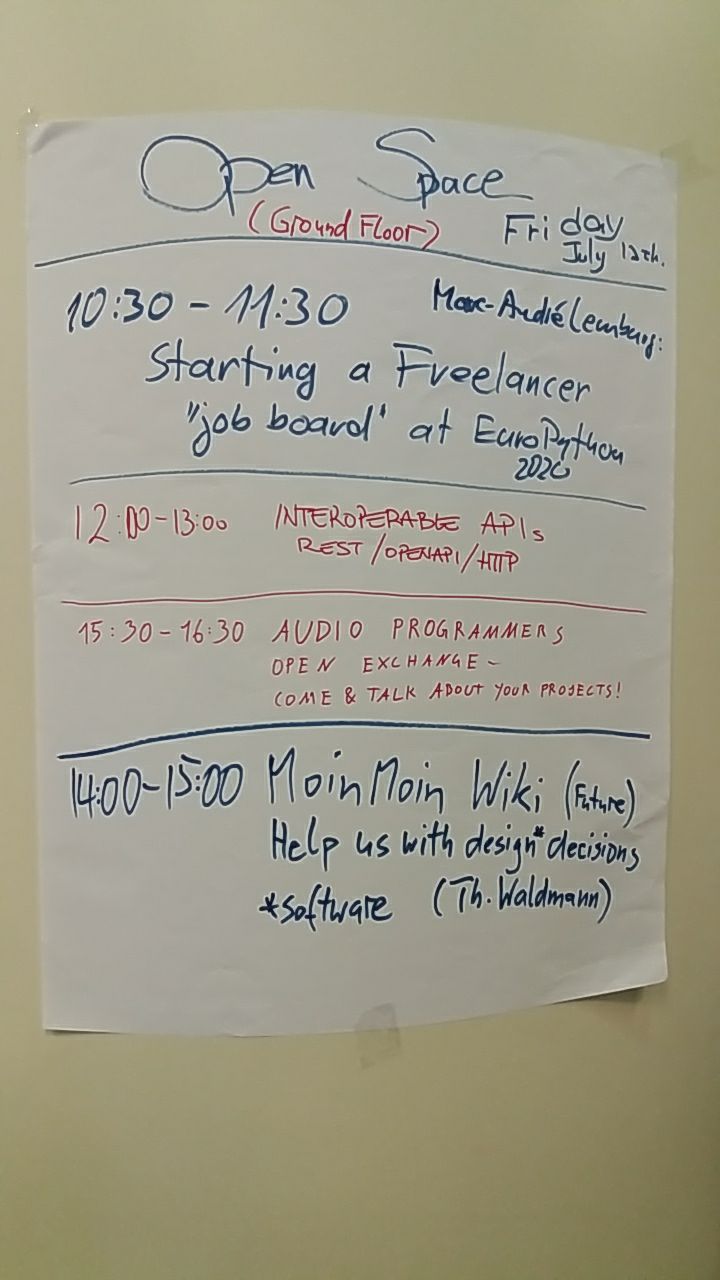 Open Space
(Ground Floor)
Friday
July 12th.
10:30 - 11:30
Marc-André Lemburg:
Starting a Freelancer
"job board" at EuroPython
2020
12:00-13:00 INTEROPERABLE APIs
REST/OPENAPI/HTTP
15:30-16:30 AUDIO PROGRAMMERS
OPEN EXCHANGE -
COME & TALK ABOUT YOUR PROJECTS!
14:00-15:00 MoinMoin Wiki (Future)
Help us with design* decisions
*software (Th. Waldmann)